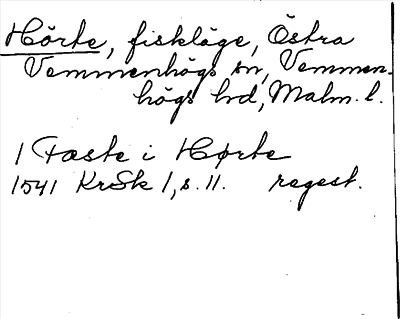 Hörte, fiskläge, Östra
Vemmenhögs sn, Vemmen-
högs hd, Malm. l.
1 Fæste i Hørte
1541 KrSk 1, s. 11. regest.